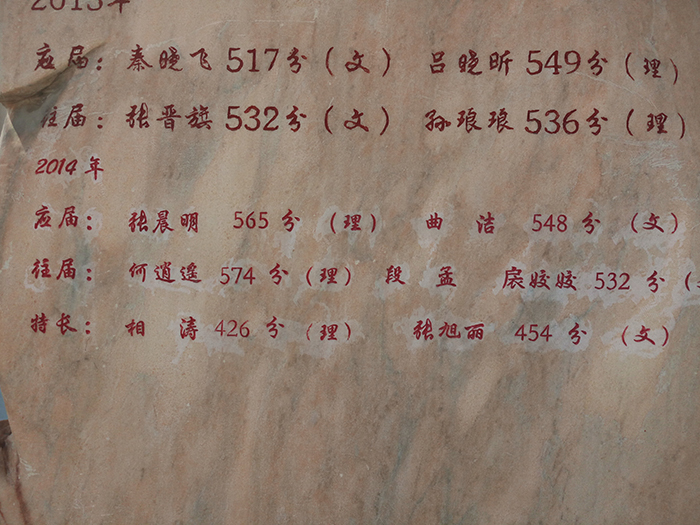 2013年
应届：秦晓飞 517分（文） 吕晓昕 549分（理）
往届：张晋旗 532分（文） 孙琅琅 536分（理）
2014年
应届：张晨明 565分（理） 曲洁 548分（文）
往届：何逍遥 574分（理） 段孟 扆姣姣 532分（
特长：相涛 426分（理） 张旭丽 454分（文）